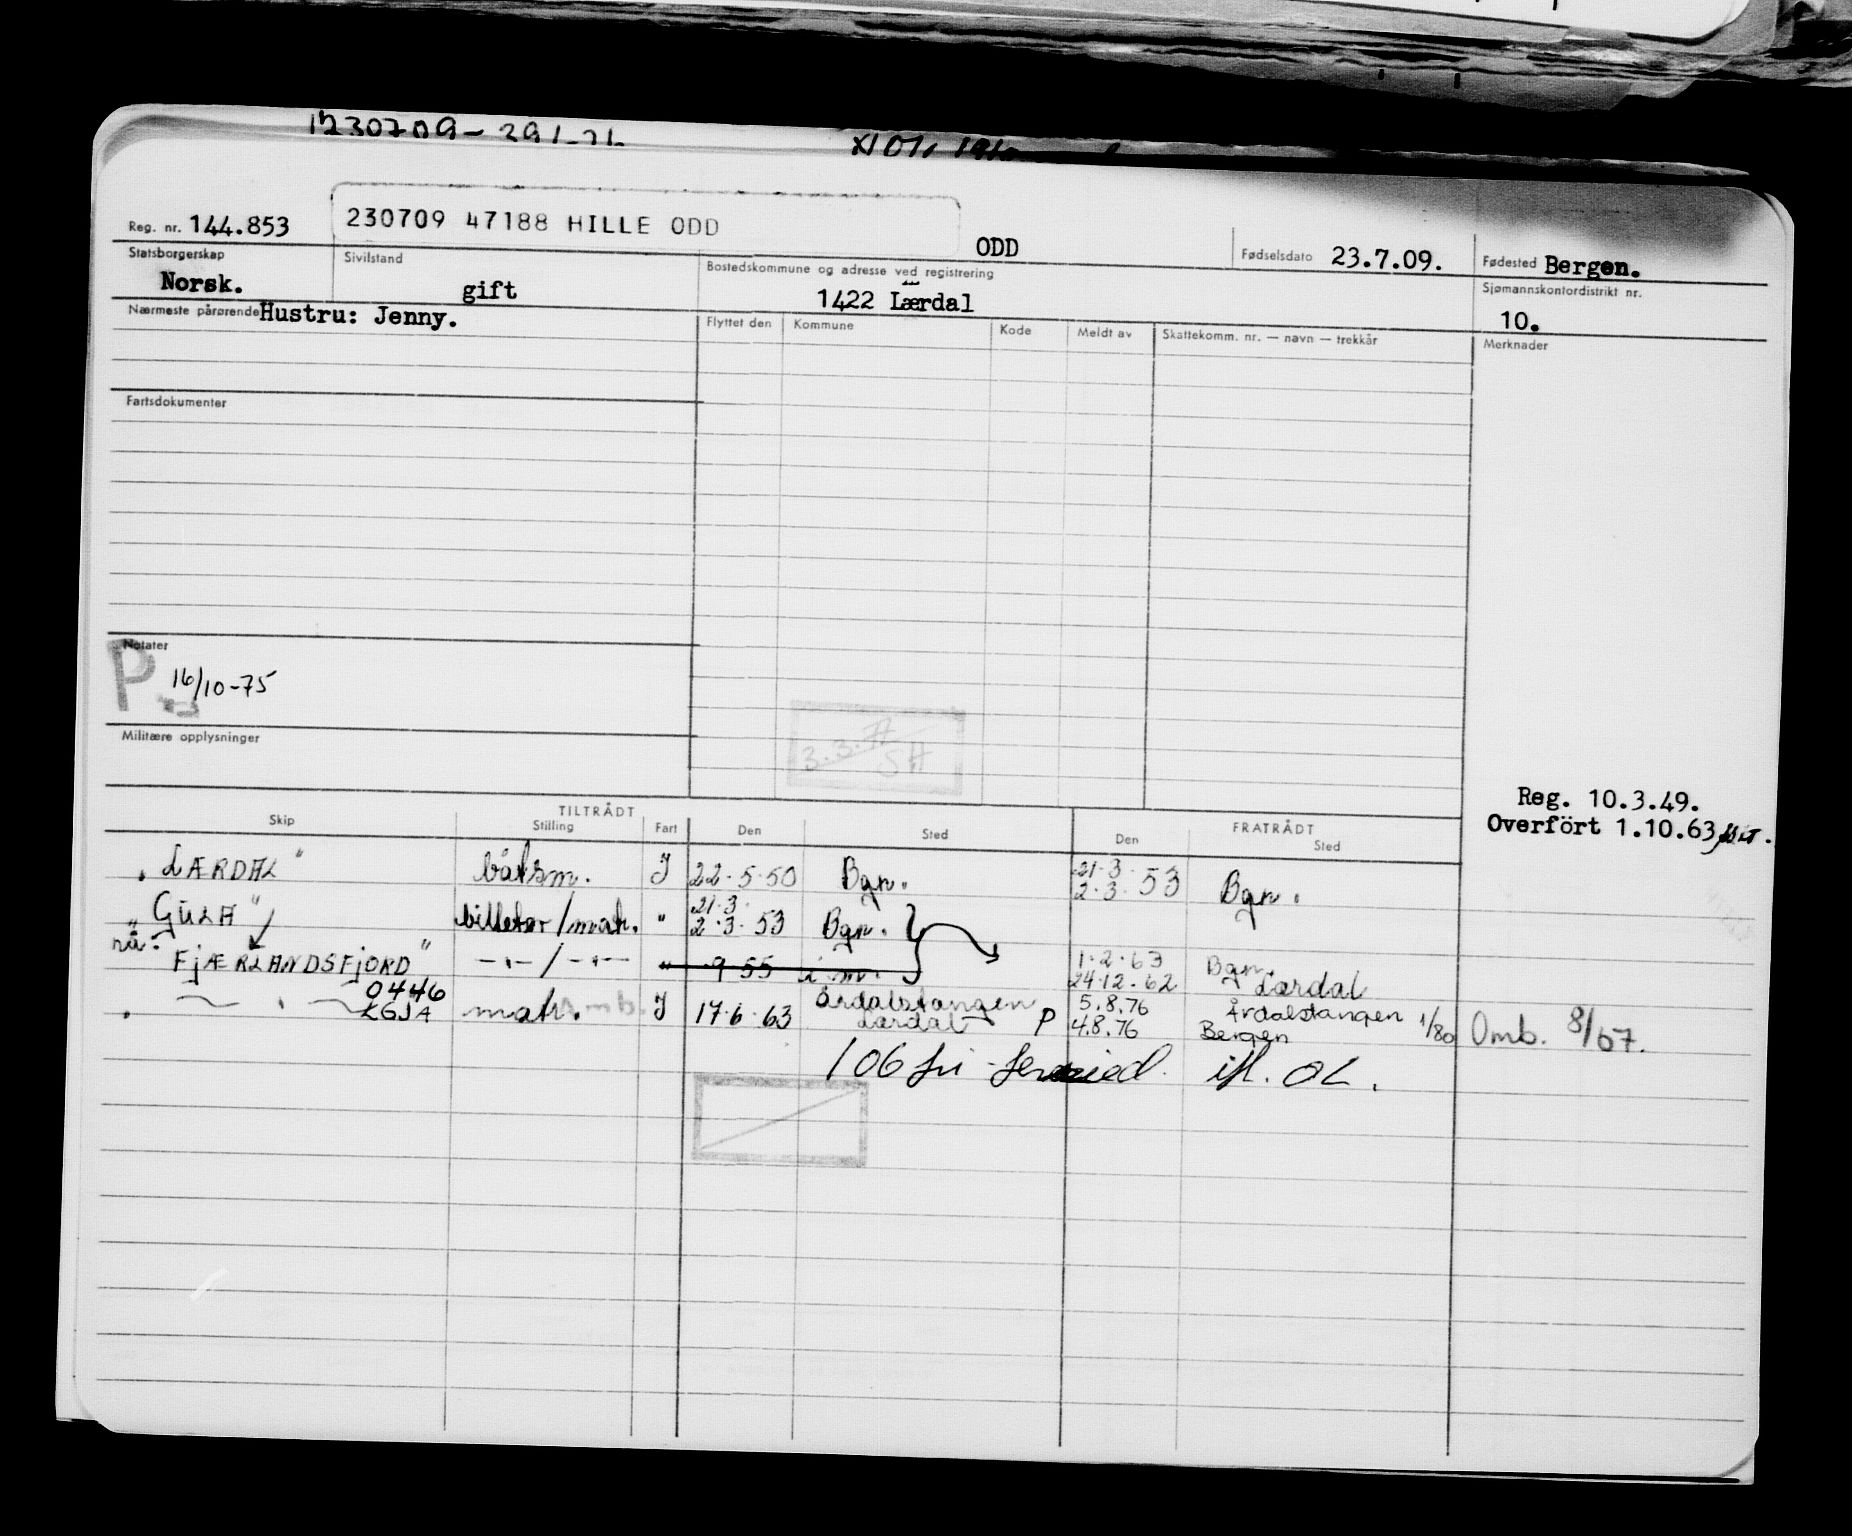 230709-291
Reg. nr. 144.853 230709 47188 HILLE ODD ODD Fødselsdato 23.7.09. Fødested Bergen.
Statsborgerskap Norsk. Sivilstand gift Bostedskommune og adresse ved registrering 1422 Lærdal Sjømannskontordistrikt nr. 10.
Nærmeste pårørende Hustru: Jenny. Flyttet den Kommune Kode Meldt av Skattekomm. nr. — navn — trekkår Merknader
Fartsdokumenter
Notater
P 16/10-75
3.3.77
SH
Militære opplysninger
Reg. 10.3.49.
Overfört 1.10.63
TILTRÅDT FRATRÅDT
Skip Stilling Fart Den Sted Den Sted
"LÆRDAL" båtsm. J 22.5.50 Bgn. 21.3. 2.3.53 Bgn.
"GULA" billetør/matr. " 21.3. 2.3.53 Bgn.
nå: FJÆRLANDSFJORD" —"—/—"— " 9.55 1.2.63 Bgn.
24.12.62 Lærdal
0446 LGJA matr. J 17.6.63 Årdalstangen Lærdal P 5.8.76 Årdalstangen
4.8.76 Bergen 1/80 Omb. 8/67.
106 fri ifl. OL.